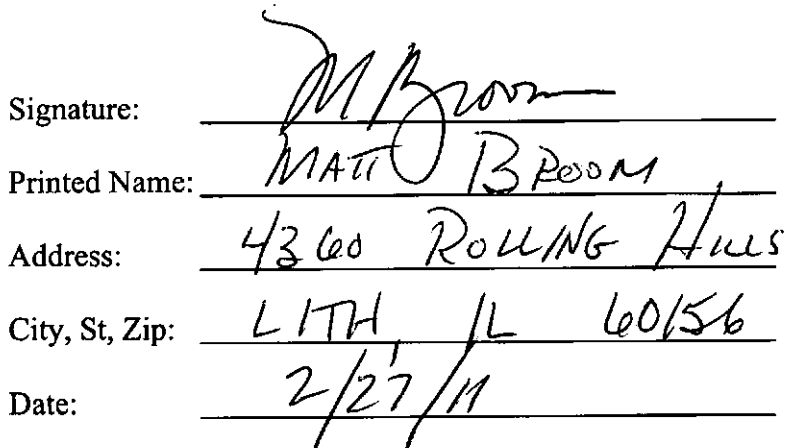 Signature: M Broom
Printed Name: MATT BROOM
Address: 4360 ROLLING HILLS
City, St, Zip: LITH, IL 60156
Date: 2/27/11